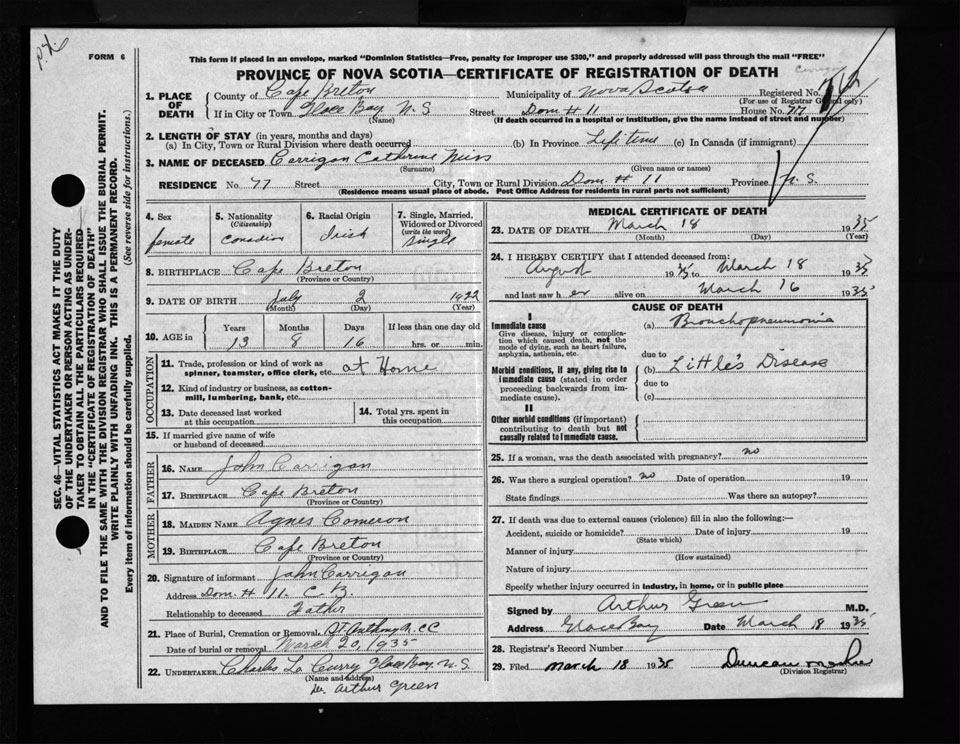 FORM 6
This form if placed in an envelope, marked "Dominion Statistics—Free, penalty for improper use $300," and properly addressed will pass through the mail "FREE"
PROVINCE OF NOVA SCOTIA—CERTIFICATE OF REGISTRATION OF DEATH
1. PLACE OF DEATH
County of Cape Breton Municipality of Nova Scotia Registered No.
(For use of Registrar General only)
If in City or Town Glace Bay N.S Street Dom # 11 House No. 77
(Name) (If death occurred in a hospital or institution, give the name instead of street and number)
2. LENGTH OF STAY (in years, months and days)
(a) In City, Town or Rural Division where death occurred (b) In Province Life time (c) In Canada (if immigrant)
3. NAME OF DECEASED Carrigan Catherine Miss
(Surname) (Given name or names)
RESIDENCE No. 77 Street City, Town or Rural Division Dom. # 11 Province N. S.
(Residence means usual place of abode. Post Office Address for residents in rural parts not sufficient)
SEC. 46—VITAL STATISTICS ACT MAKES IT THE DUTY
OF THE UNDERTAKER OR PERSON ACTING AS UNDER-
TAKER TO OBTAIN ALL THE PARTICULARS REQUIRED
IN THE "CERTIFICATE OF REGISTRATION OF DEATH"
AND TO FILE THE SAME WITH THE DIVISION REGISTRAR WHO SHALL ISSUE THE BURIAL PERMIT.
WRITE PLAINLY WITH UNFADING INK. THIS IS A PERMANENT RECORD.
Every item of information should be carefully supplied. (See reverse side for instructions.)
4. Sex female
5. Nationality (Citizenship) Canadian
6. Racial Origin Irish
7. Single, Married, Widowed or Divorced (write the word) Single
8. BIRTHPLACE Cape Breton
(Province or Country)
9. DATE OF BIRTH July 2 1922
(Month) (Day) (Year)
10. AGE in Years Months Days If less than one day old
13 8 16 hrs. or min.
OCCUPATION
11. Trade, profession or kind of work as spinner, teamster, office clerk, etc. at Home
12. Kind of industry or business, as cotton-mill, lumbering, bank, etc.
13. Date deceased last worked at this occupation
14. Total yrs. spent in this occupation
15. If married give name of wife or husband of deceased
FATHER
16. NAME John Carrigan
17. BIRTHPLACE Cape Breton
(Province or Country)
MOTHER
18. MAIDEN NAME Agnes Cameron
19. BIRTHPLACE Cape Breton
(Province or Country)
20. Signature of informant John Carrigan
Address Dom. # 11. C. B.
Relationship to deceased Father
21. Place of Burial, Cremation or Removal St. Anthony's, CC
Date of burial or removal March 20, 1935
22. UNDERTAKER Charles Curry Glace Bay, N. S.
(Name and address)
Dr. Arthur Green
MEDICAL CERTIFICATE OF DEATH
23. DATE OF DEATH March 18 1935
(Month) (Day) (Year)
24. I HEREBY CERTIFY that I attended deceased from:
August 1935 to March 18 1935
and last saw her alive on March 16 1935
CAUSE OF DEATH
I
Immediate cause
Give disease, injury or complication which caused death, not the mode of dying, such as heart failure, asphyxia, asthenia, etc.
(a) Bronchopneumonia
due to
Morbid conditions, if any, giving rise to immediate cause (stated in order proceeding backwards from immediate cause).
(b) Little's Disease
due to
(c)
II
Other morbid conditions (if important) contributing to death but not causally related to immediate cause.
25. If a woman, was the death associated with pregnancy? no
26. Was there a surgical operation? no Date of operation 19
State findings Was there an autopsy?
27. If death was due to external causes (violence) fill in also the following:—
Accident, suicide or homicide? Date of injury 19
(State which)
Manner of injury
(How sustained)
Nature of injury
Specify whether injury occurred in industry, in home, or in public place
Signed by Arthur Green M.D.
Address Glace Bay Date March 18 1935
28. Registrar's Record Number
29. Filed March 18 1935 Duncan
(Division Registrar)